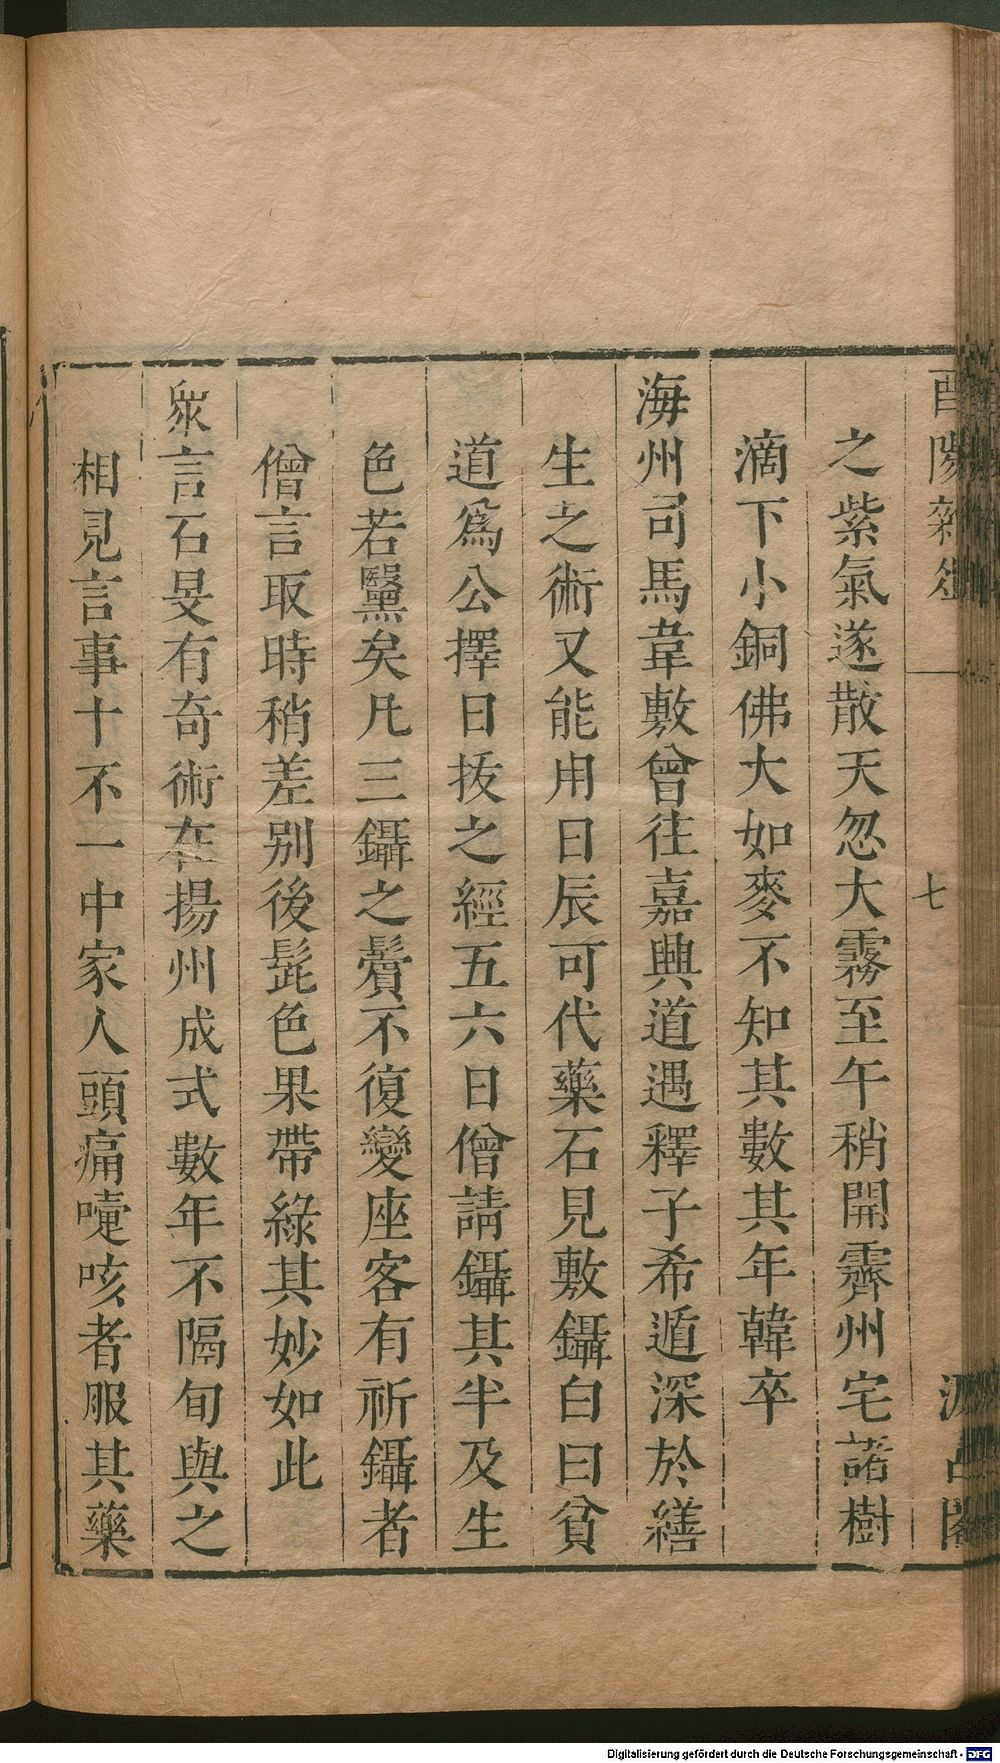 酉陽雜俎
七
汲古閣
之紫氣遂散天忽大霧至午稍開霽州宅諸樹
滴下小銅佛大如麥不知其數其年韓卒
海州司馬韋敷曾往嘉興道遇釋子希遁深於繕
生之術又能用日辰可代藥石見敷鑷白曰貧
道爲公擇日拔之經五六日僧請鑷其半及生
色若黳矣凡三鑷之鬢不復變座客有祈鑷者
僧言取時稍差别後髭色果帶綠其妙如此
衆言石旻有奇術在揚州成式數年不隔旬與之
相見言事十不一中家人頭痛嚔咳者服其藥
Digitalisierung gefördert durch die Deutsche Forschungsgemeinschaft - DFG